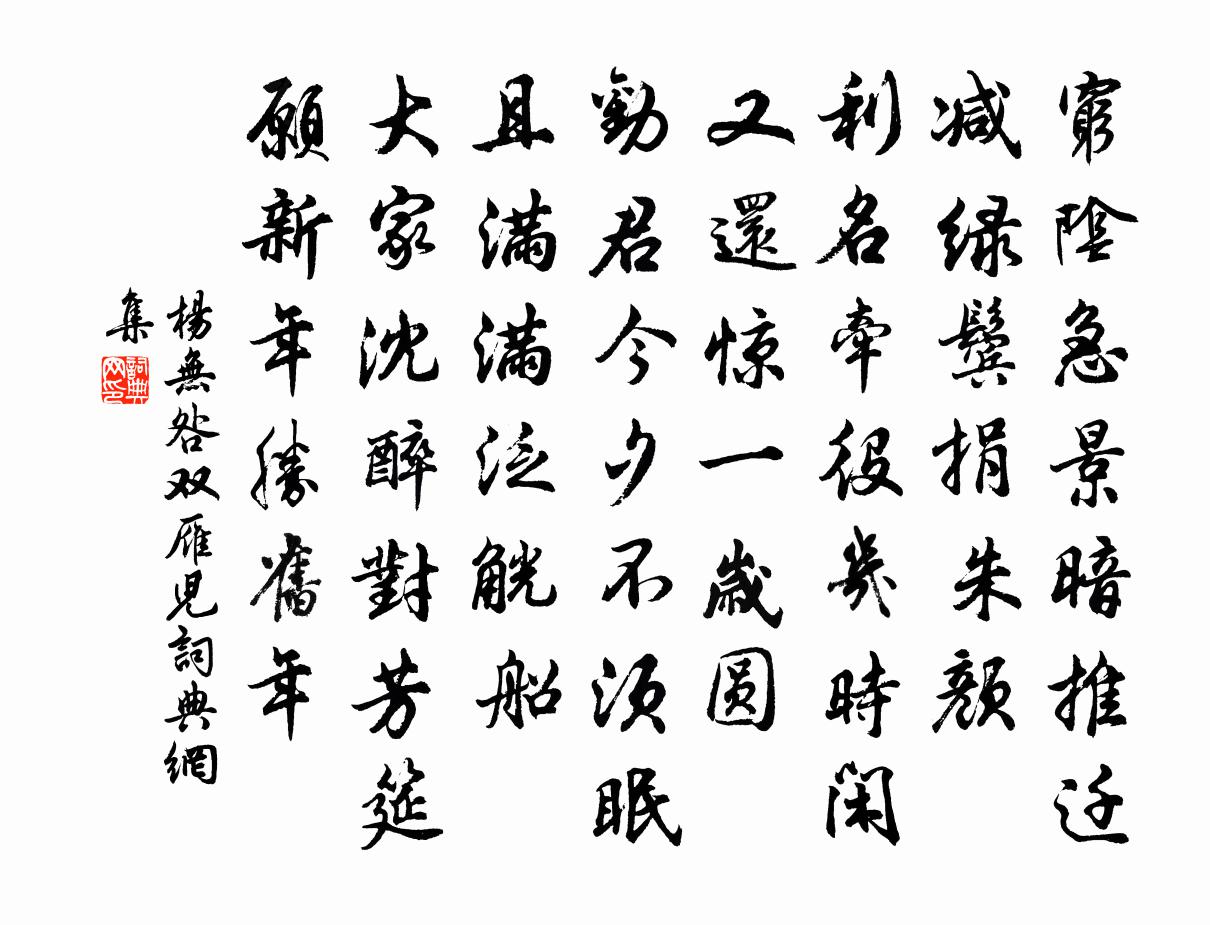 窮陰急景暗推迁
减绿鬓捐朱顔
利名牽役幾時闲
又還惊一歲圆
勸君今夕不須眠
且满满泛觥船
大家沈醉對芳筵
願新年勝舊年
楊無咎双雁兒詞典網
集
詞典网印